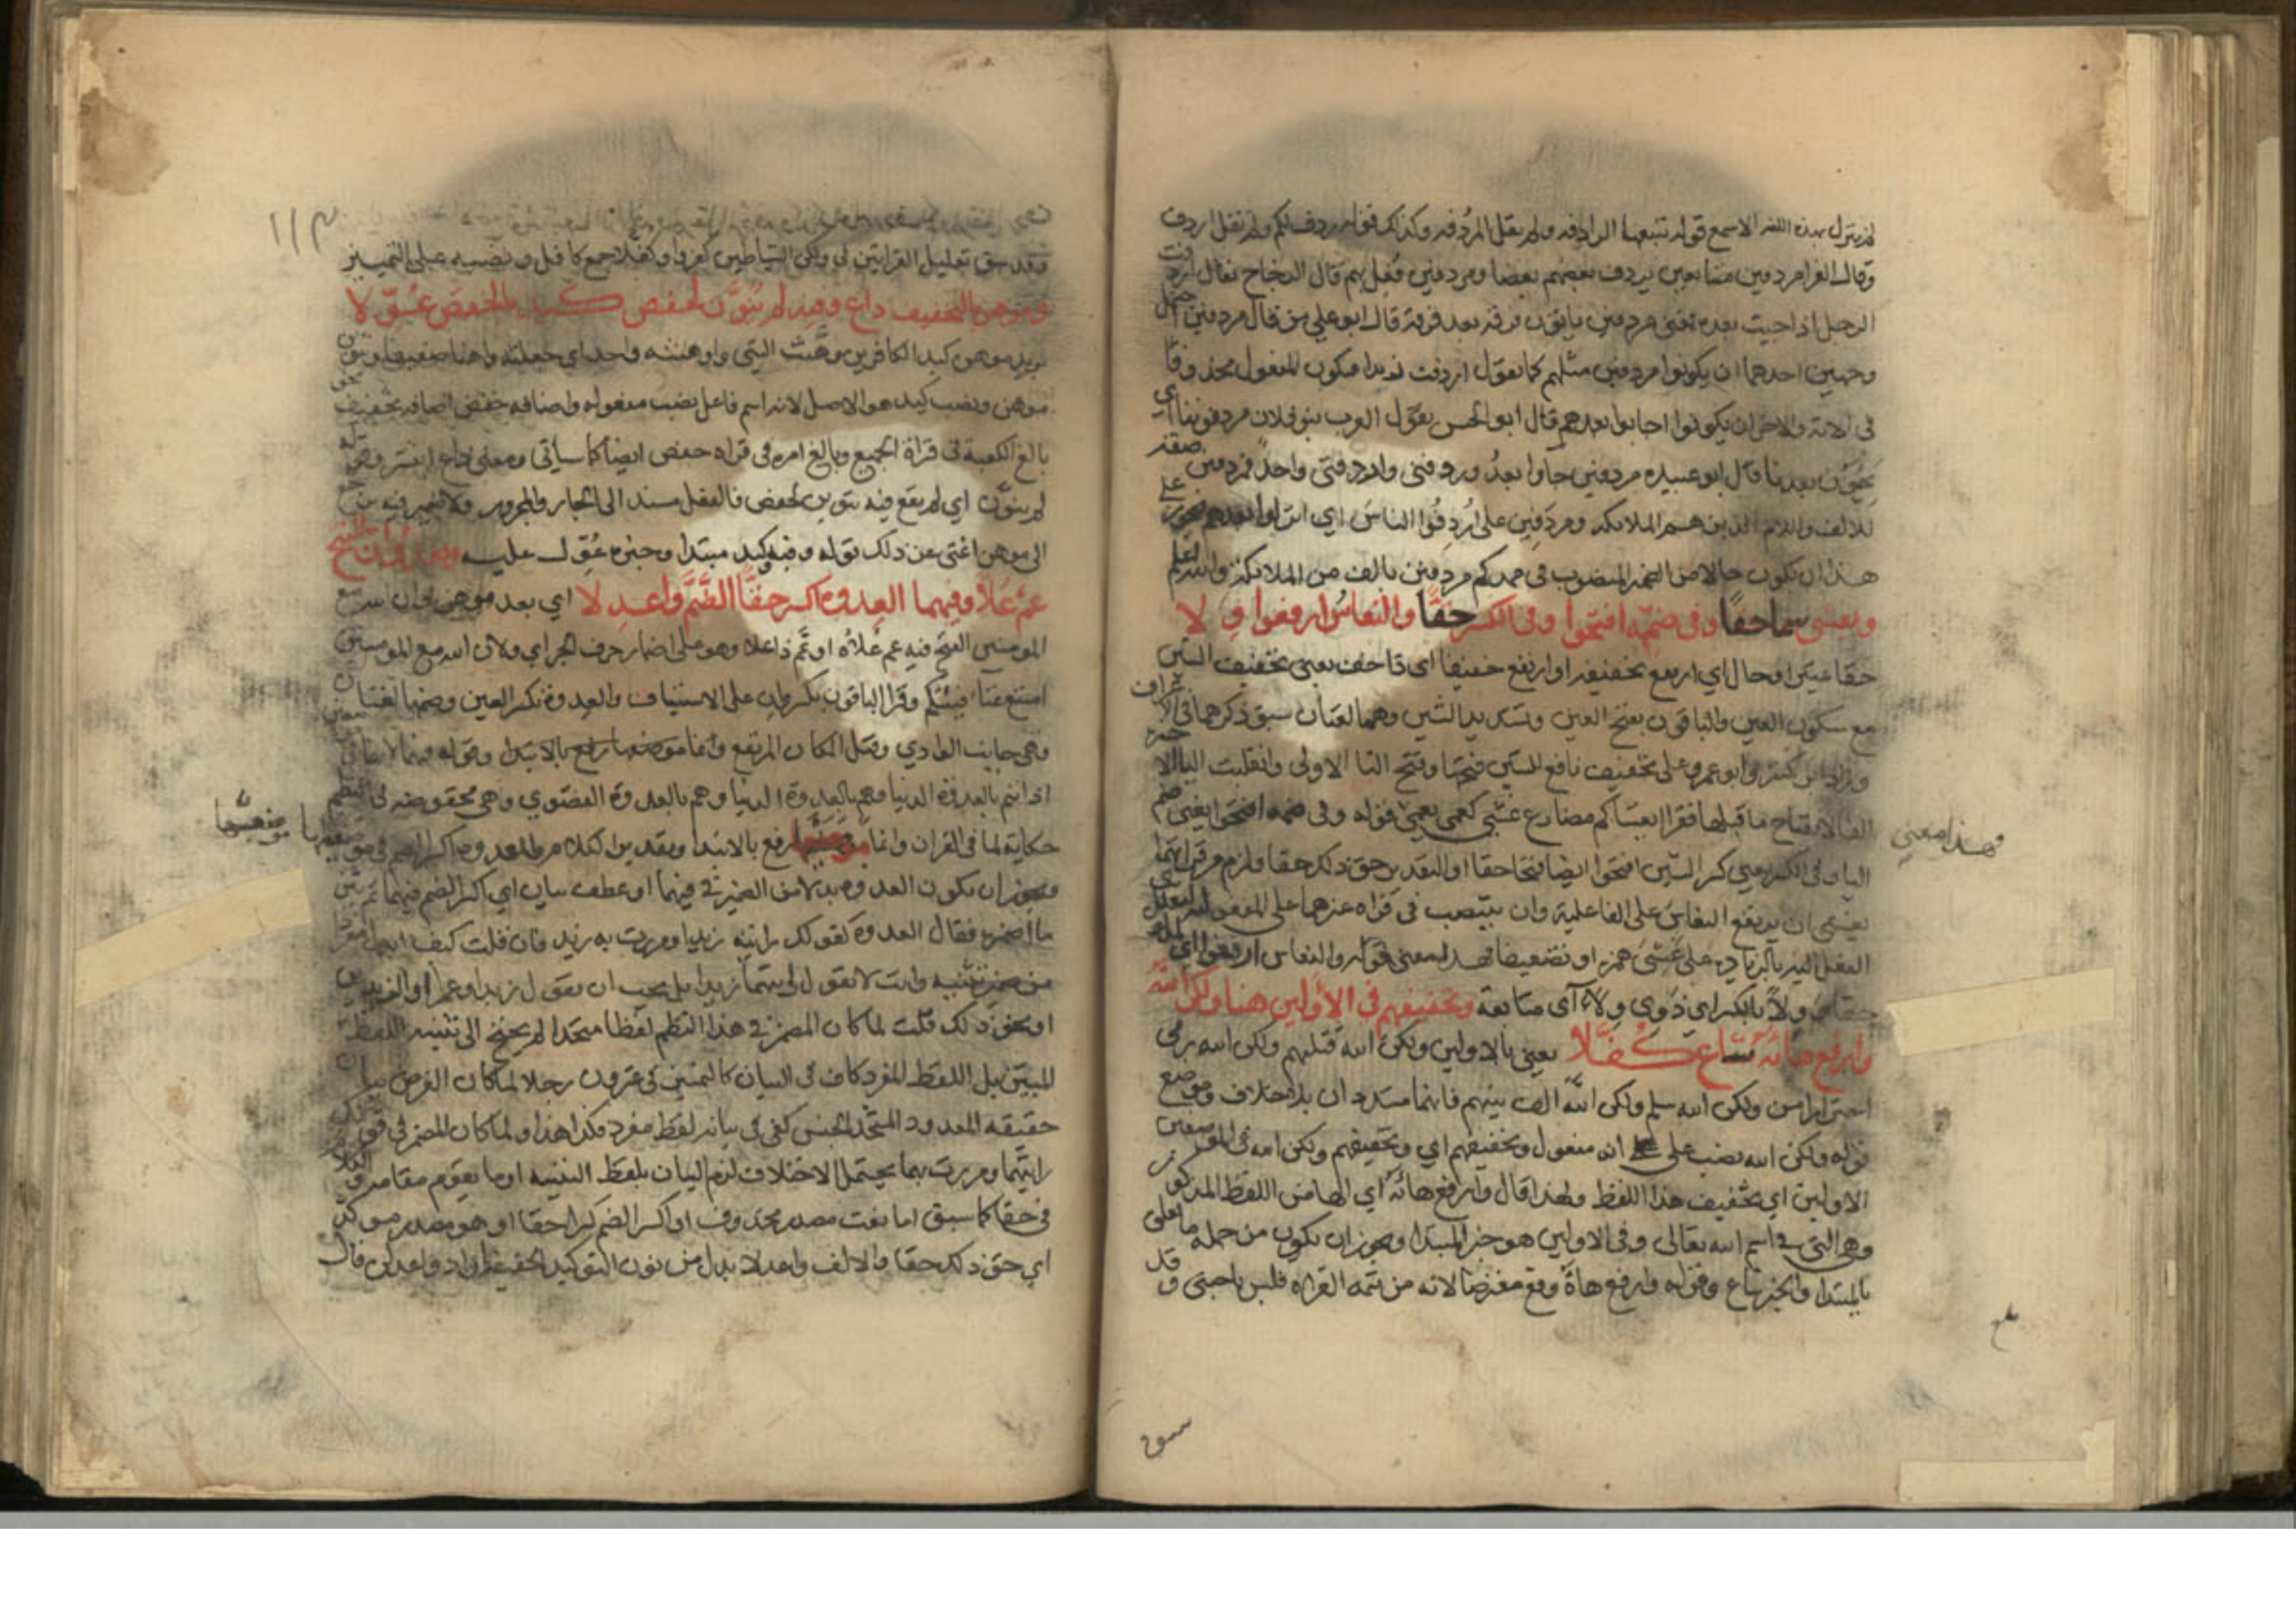 لم ينزل بهذه اللغة الا سمع قوله تتبعها الرادفة ولم يقل المردفة وكذلك قوله ردف لكم ولم يقل اردف
وقال الفرا مردفين متتابعين يردف بعضهم بعضا ومردفين فعل بهم قال الزجاج يقال اردفت
الرجل اذا جيت بعده فمعنى مردفين ياتون فرقة بعد فرقة قال ابو علي من قال مردفين احتمل
وجهين احدهما ان يكونوا مردفين مثلهم كما تقول اردفت زيدا فيكون المفعول محذوفا
في الاية والاخر ان يكونوا احابوا بعدهم قال ابو الحسن تقول العرب بنو فلان مردفوننا اي
يجيون بعدنا قال ابو عبيده مردفين جاوا بعد وردفني واردفني واحد فمردفين صفة
للالف واللام الذين هم الملايكه ومردفين على اردفوا الناس اي انزلوا بعدهم فيجوز على
هذا ان يكون حالا من الضمير المنصوب في ممدكم مردفين بالف من الملايكة والله اعلم
ويغشى سما حقا وفي ضمه افتحوا وفي الكسر حقا والنعاس ارفعوا ولا
حقا تمييز او حال اي ارتفع تخفيفه او ارتفع خفيفا اي ذا خف يعني تخفيف الشين
مع سكون الغين والباقون بفتح الغين وتشديد الشين وهما لغتان سبق ذكرهما في الاعراف
وزاد ابن كثير وابو عمرو على تخفيف نافع للشين فتحها وفتح اليا الاولى وانقلبت اليا الاخيرة
الفا لانفتاح ما قبلها فقرا يغشاكم مضارع غشي كعمي يعمى فقوله وفي ضمه افتحوا يعني ضم
وهذا معنى
اليا وفي الكسر يعني كسر الشين افتحوا ايضا فتحا حقا او التقدير حق ذلك حقا ولزم من قراتهما
يغشى ان يرتفع النعاس على الفاعلية وان ينتصب في قراه غيرهما على المفعولية
الفعل اليه بالزيادة على غشي همزه او تضعيفا فهذا معنى قوله والنعاس ارفعوا اي
حقا ولا بالكسر اي ذوي ولاء اي متابعة وتخفيفهم في الاولين هنا ولكن الله
وارفع هاءه شاع كفلا يعني بالاولين ولكن الله قتلهم ولكن الله رمى
احترازا من ولكن الله سلم ولكن الله الف بينهم فانهما مشددان بلا خلاف وموضع
قوله ولكن الله نصب على انه مفعول وتخفيفهم اي وتخفيفهم ولكن الله في الموضعين
الاولين اي تخفيف هذا اللفظ ولهذا قال وارفع هاءه اي الها من اللفظ المذكور
وهي التي في اسم الله تعالى وفي الاولين هو خبر المبتدا ويجوز ان يكون من جمله ما تعلق
بالمبتدا والخبر شاع وقوله وارفع هاه وقع معترضا لانه من تتمه القراه فليس باجنبي وقد
سبق
١١٣
وقد سبق تعليل القراتين في ولكن الشياطين كفروا وكفلا جمع كافل ونصبه على التمييز
وموهن بالتخفيف ذاع وفيه لم ينون لحفص كيد بالخفض عول لا
يريد موهن كيد الكافرين وهنت الشي واوهنته واحد اي جعلته واهنا ضعيفا وتنوين
موهن ونصب كيد هو الاصل لانه اسم فاعل نصب مفعوله واضافه حفص اضافه تخفيف
بالغ الكعبة في قراة الجميع وبالغ امره في قراه حفص ايضا كما سياتي ومعنى ذاع انتشر وقوله
لم ينون اي لم يقع فيه تنوين لحفص فالفعل مسند الى الجار والمجرور ولا ضمير فيه يرجع
الى موهن اغنى عن ذلك قوله وفيه وكيد مبتدا وخبره عول عليه وبعد وان الفتح
عم علا وفيهما العدوة اكسر حقا الضم واعدلا اي بعد موهن وان الله مع
المومنين الفتح فيه عم علاه او عم ذا علا وهو على اضمار حرف الجر اي ولان الله مع المومنين
امتنع غناء فيتكم وقرا الباقون بكسر وان على الاستيناف والعدوة بكسر العين وضمها لغتان
وهي جانب الوادي وقيل المكان المرتفع وانما موضعها رفع بالابتدا وقوله فيهما لانها في
اذ انتم بالعدوة الدنيا وهم بالعدوة القصوى وهي مخفوضه في النظم
حكاية لما في القران وانما موضعها رفع بالابتدا وتقدير الكلام والعدوة اكسر الضم في موضعيها
ويجوز ان يكون العدوه بدلا من الضمير في فيهما او عطف بيان اي اكسر الضم فيهما ثم بين
ما اضمره فقال العدوة كقولك رايته زيدا ومررت به زيد فان قلت كيف ابدل مفردا
من ضمير تثنيه وانت لا تقول رايتهما زيدا بل يجب ان تقول زيدا وعمرا او الزيدين
او نحو ذلك قلت لما كان المضمر في هذا النظم لفظا متحدا لم يحتج الى تثنيه اللفظ
المبين بل اللفظ المفرد كاف في البيان كالتمييز في عشرون رجلا لما كان الغرض بيان
حقيقه المعدود المتحد الجنس كفى في بيانه لفظ مفرد فكذا هذا ولما كان المضمر في قولك
رايتهما ومررت بهما يحتمل الاختلاف لزم البيان بلفظ التثنيه او ما يقوم مقامه والكلام
في حقا كما سبق اما نعت مصدر محذوف او اكسر الضم كسرا حقا او هو مصدر موكد
اي حق ذلك حقا والالف واعدلا بدل من نون التوكيد الخفيفه اراد واعدلن قال